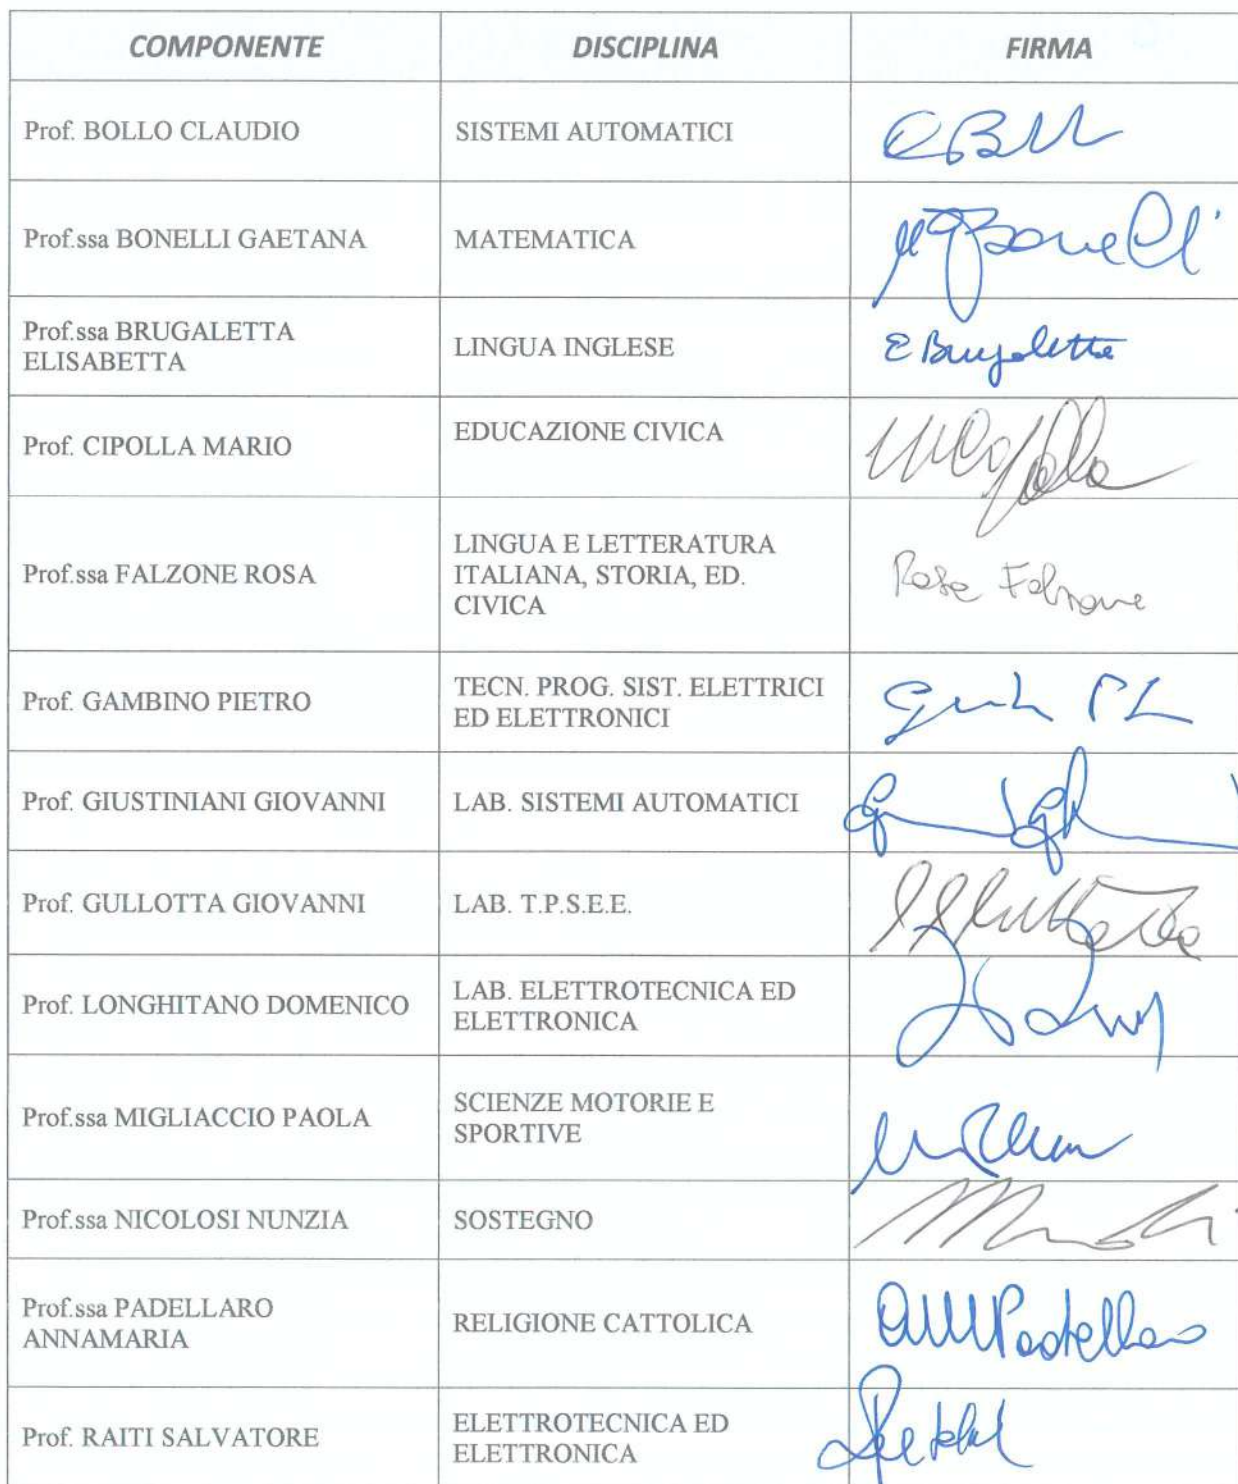 COMPONENTE DISCIPLINA FIRMA
Prof. BOLLO CLAUDIO SISTEMI AUTOMATICI
Prof.ssa BONELLI GAETANA MATEMATICA Bonelli
Prof.ssa BRUGALETTA
ELISABETTA
LINGUA INGLESE E Brugaletta
Prof. CIPOLLA MARIO EDUCAZIONE CIVICA
Prof.ssa FALZONE ROSA
LINGUA E LETTERATURA
ITALIANA, STORIA, ED.
CIVICA
Rosa Falzone
Prof. GAMBINO PIETRO
TECN. PROG. SIST. ELETTRICI
ED ELETTRONICI
Prof. GIUSTINIANI GIOVANNI LAB. SISTEMI AUTOMATICI
Prof. GULLOTTA GIOVANNI LAB. T.P.S.E.E.
Prof. LONGHITANO DOMENICO
LAB. ELETTROTECNICA ED
ELETTRONICA
Prof.ssa MIGLIACCIO PAOLA
SCIENZE MOTORIE E
SPORTIVE
Prof.ssa NICOLOSI NUNZIA SOSTEGNO
Prof.ssa PADELLARO
ANNAMARIA
RELIGIONE CATTOLICA AMPadellaro
Prof. RAITI SALVATORE
ELETTROTECNICA ED
ELETTRONICA